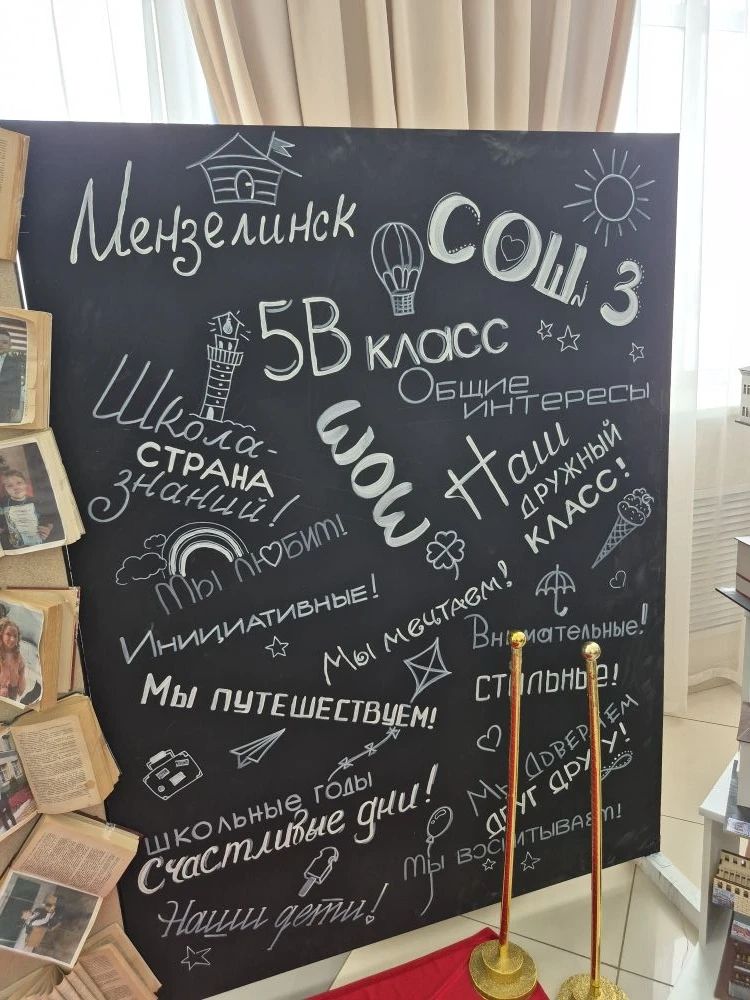 Мензелинск
СОШ 3
5В класс
Общие
интересы
Школа-
СТРАНА
знаний!
WOW
Наш
дружный
класс!
Мы любим!
Инициативные!
Мы мечтаем!
Внимательные!
Мы путешествуем!
стильные!
школьные годы
Счастливые дни!
Мы доверяем
друг другу!
Мы воспитываем!
Наши дети!